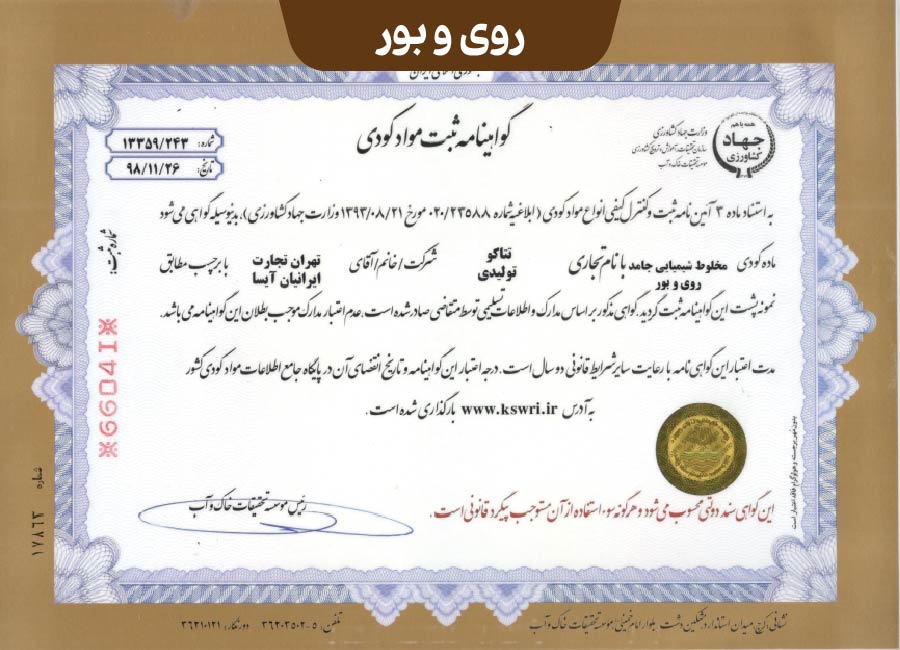 روی و بور
گواهینامه ثبت مواد کودی
همه با هم
جهاد
کشاورزی
وزارت جهاد کشاورزی
سازمان تحقیقات، آموزش و ترویج کشاورزی
موسسه تحقیقات خاک و آب
شماره: ۱۳۳۵۹/۲۴۳
تاریخ: ۹۸/۱۱/۲۶
به استناد ماده ۳ آیین نامه ثبت و کنترل کیفی انواع مواد کودی (ابلاغیه شماره ۰۲۰/۲۳۵۸۸ مورخ ۱۳۹۳/۰۸/۲۱ وزارت جهاد کشاورزی)، بدینوسیله گواهی می شود
ماده کودی مخلوط شیمیایی جامد با نام تجاری نتاگو شرکت/خانم/آقای تهران تجارت با برچسب مطابق
روی و بور تولیدی ایرانیان آیسا
نمونه پشت این گواهینامه ثبت گردید. گواهی مذکور بر اساس مدارک و اطلاعات تسلیمی توسط متقاضی صادر شده است. عدم اعتبار مدارک موجب بطلان این گواهینامه می باشد.
مدت اعتبار این گواهی نامه با رعایت سایر شرایط قانونی دو سال است. درجه اعتبار این گواهینامه و تاریخ انقضای آن در پایگاه جامع اطلاعات مواد کودی کشور
به آدرس www.kswri.ir بارگذاری شده است.
رئیس موسسه تحقیقات خاک و آب
این گواهی سند دولتی محسوب می شود و هرگونه سوء استفاده از آن مستوجب پیگرد قانونی است.
بدون مهر برجسته و هولوگرام فاقد اعتبار است
شماره ثبت:
※66041※
شماره
۱۷۸۶۳
نشانی: کرج، میدان استاندارد، مشکین دشت، بلوار امام خمینی، موسسه تحقیقات خاک و آب
تلفن: ۵-۳۶۲۰۳۵۰۲ دورنگار: ۳۶۲۱۰۱۲۱